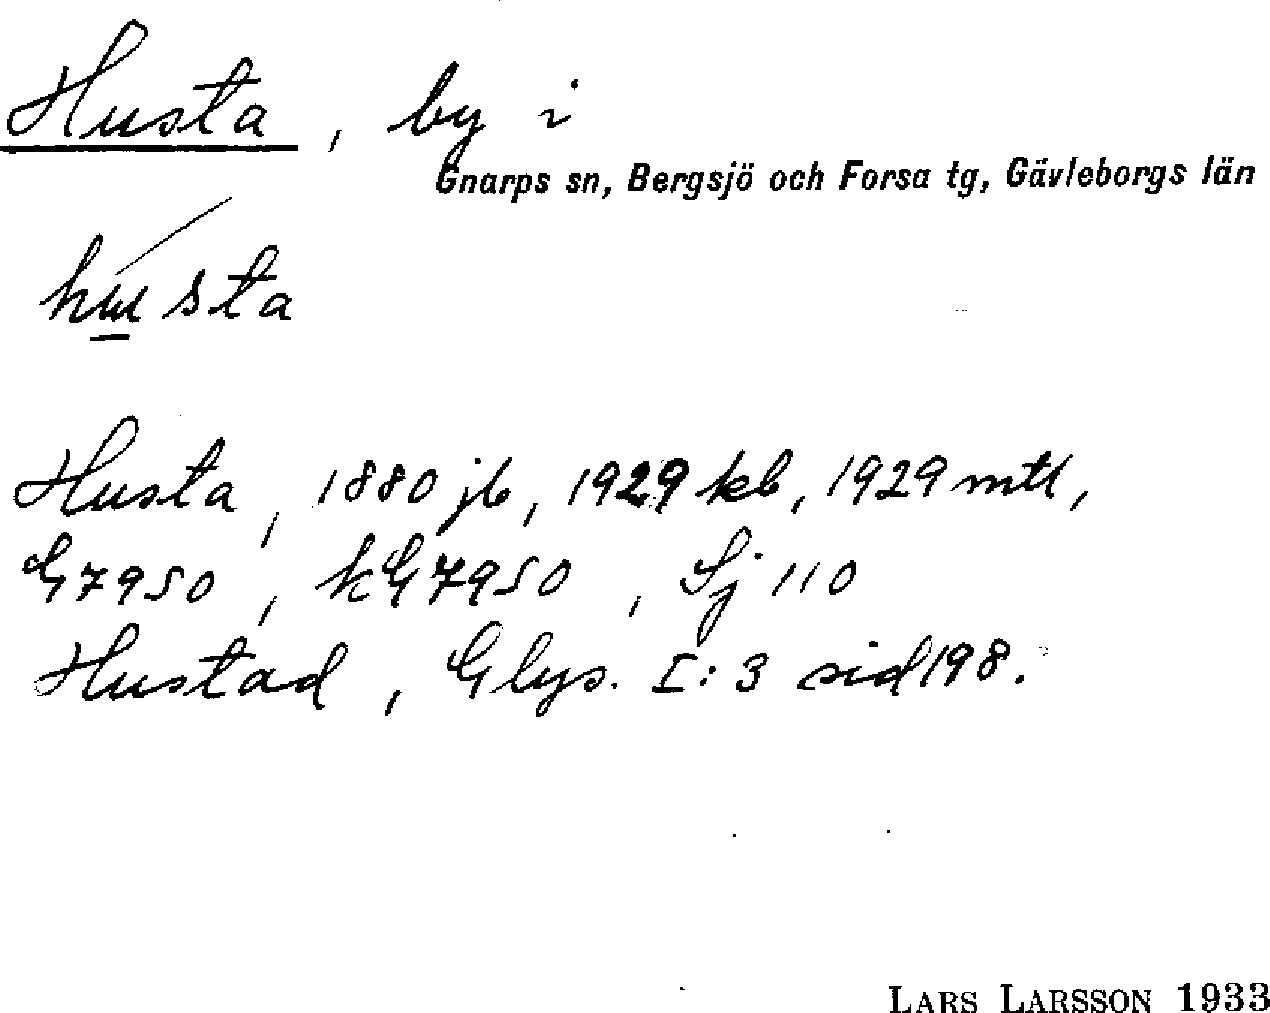 Husta, by i
Gnarps sn, Bergsjö och Forsa tg, Gävleborgs län
husta
Husta, 1880 jb, 1929 kb, 1929 mtl,
G7950, kG7950, Sj 110
Hustad, Glys. I:3 sid 198.
LARS LARSSON 1933